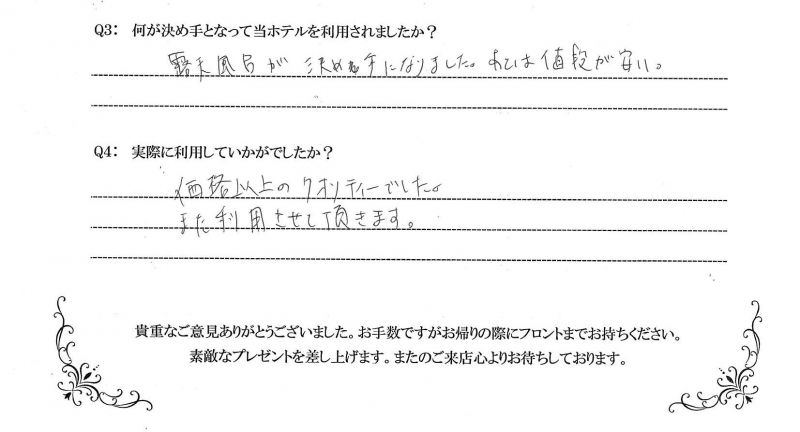 Q3: 何が決め手となって当ホテルを利用されましたか？
露天風呂が決め手になりました。あとは値段が安い。
Q4: 実際に利用していかがでしたか？
価格以上のクオリティーでした。
また利用させて頂きます。
貴重なご意見ありがとうございました。お手数ですがお帰りの際にフロントまでお持ちください。
素敵なプレゼントを差し上げます。またのご来店心よりお待ちしております。